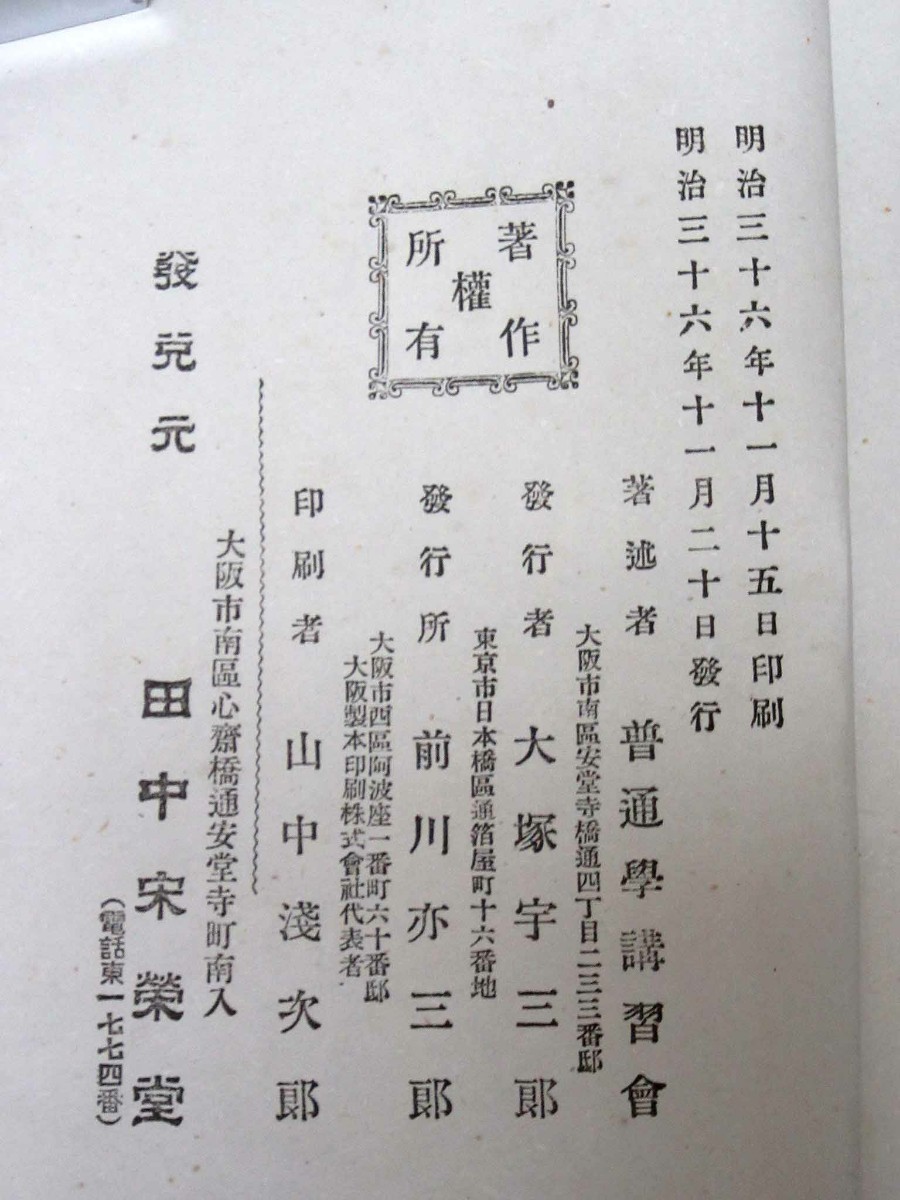 明治三十六年十一月十五日印刷
明治三十六年十一月二十日發行
著作權所有
著述者 普通學講習會
大阪市南區安堂寺橋通四丁目二三三番邸
發行者 大塚宇三郎
東京市日本橋區通箔屋町十六番地
發行所 前川亦三郎
大阪市西區阿波座一番町六十番邸
大阪製本印刷株式會社代表者
印刷者 山中淺次郎
大阪市南區心齋橋通安堂寺町南入
發兌元 田中宋榮堂
(電話東一七七四番)